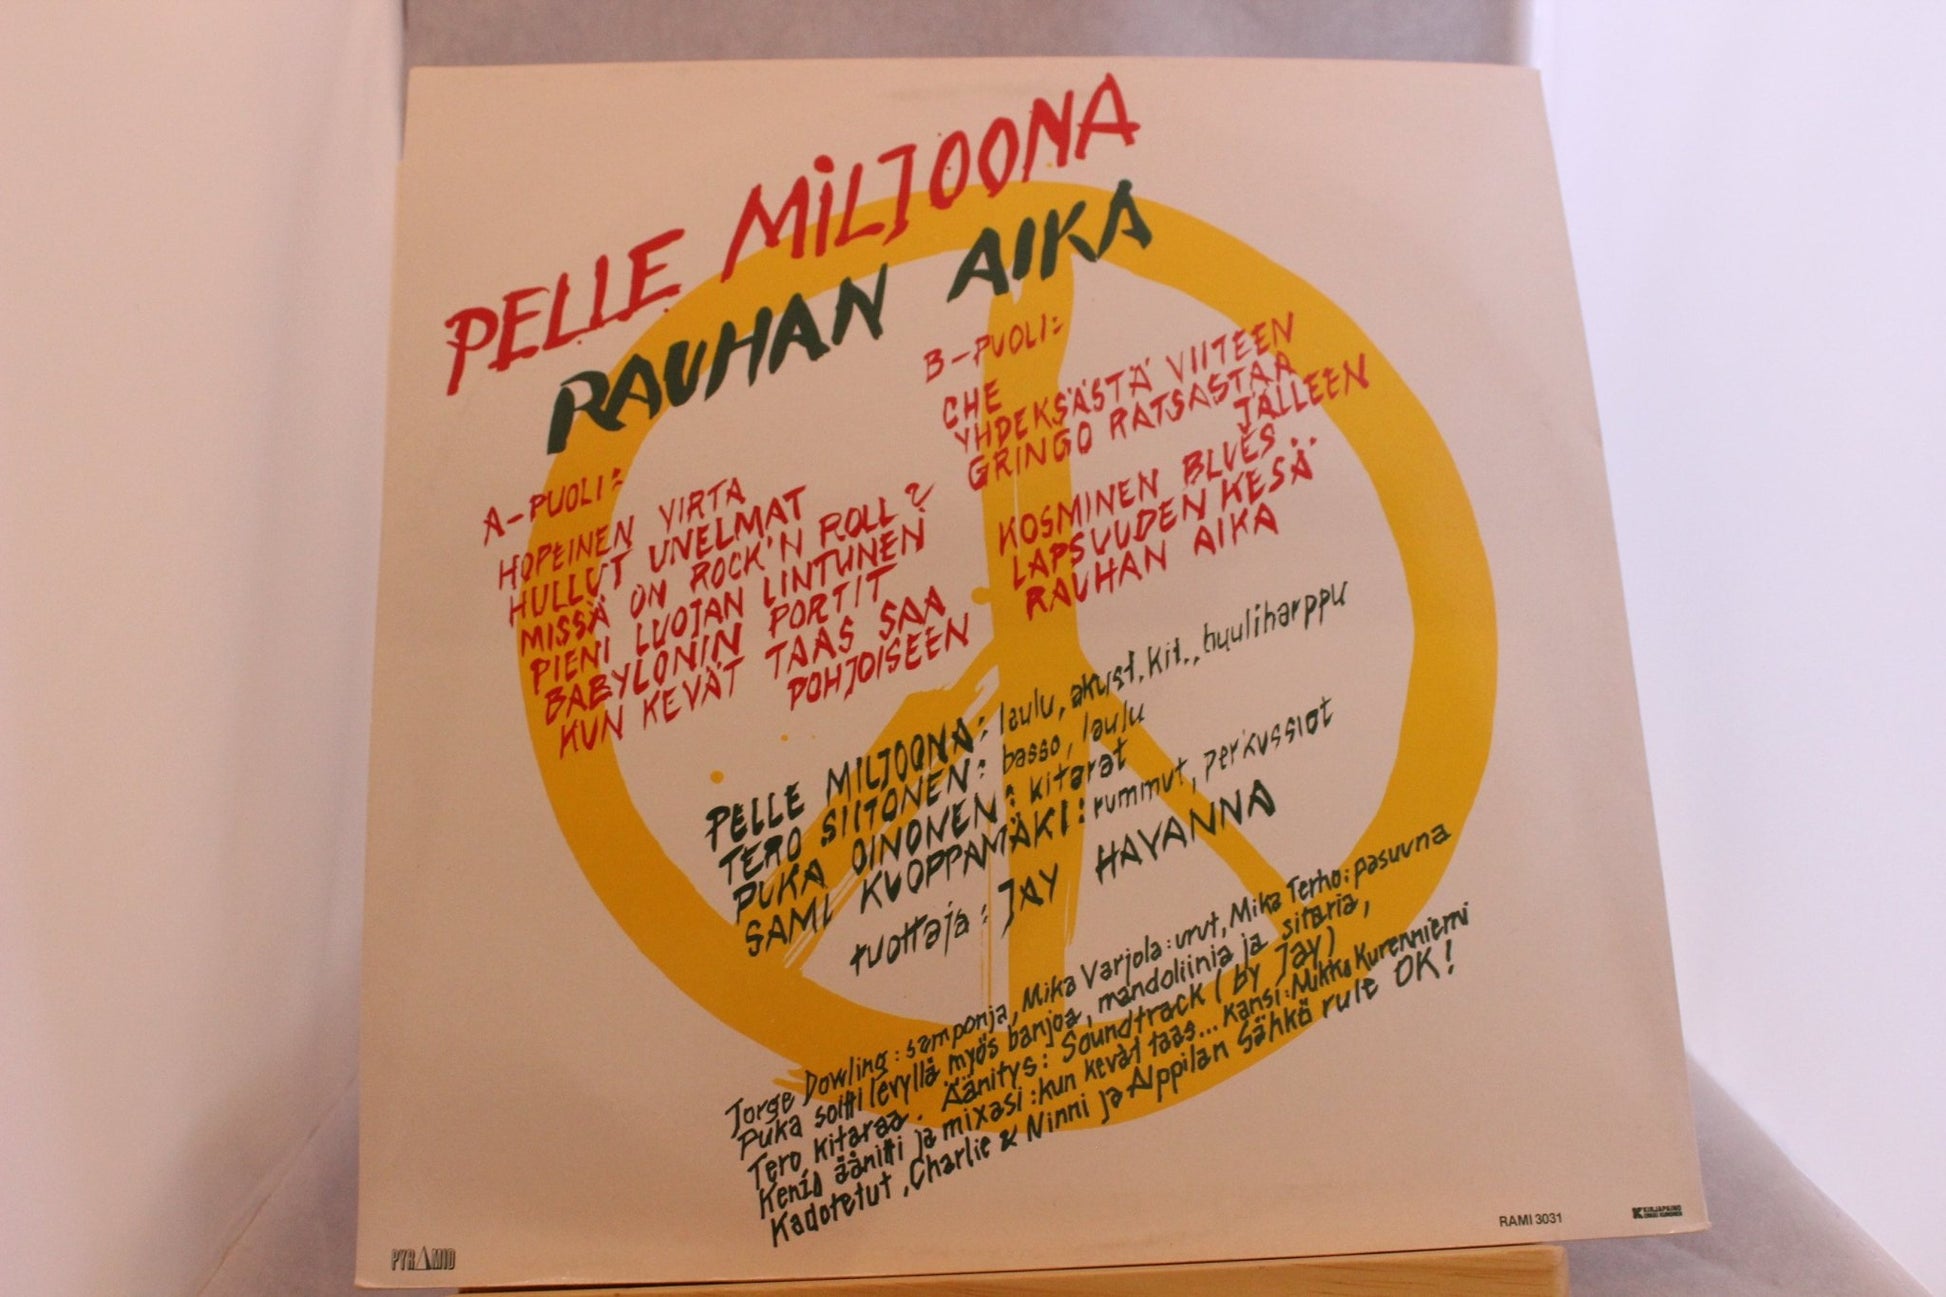 PELLE MILJOONA
RAUHAN AIKA
A-PUOLI:
HOPEINEN VIRTA
HULLUT UNELMAT
MISSÄ ON ROCK'N ROLL?
PIENI LUOJAN LINTUNEN
BABYLONIN PORTIT
KUN KEVÄT TAAS SAA
POHJOISEEN
B-PUOLI:
CHE
YHDEKSÄSTÄ VIITEEN
GRINGO RATSASTAA
JÄLLEEN
KOSMINEN BLUES
LAPSUUDEN KESÄ
RAUHAN AIKA
PELLE MILJOONA: laulu, akust. kit., huuliharppu
TERO SIITONEN: basso, laulu
PUKA OINONEN: kitarat
SAMI KUOPPAMÄKI: rummut, perkussiot
tuottaja: JAY HAVANNA
Jorge Dowling: samponja, Mika Varjola: urut, Mika Terho: pasuuna
Puka soitti levyllä myös banjoa, mandoliinia ja sitaria,
Tero kitaraa. Äänitys: Soundtrack (by Jay)
Kenio äänitti ja mixasi: kun kevät taas... Kansi: Mikko Kurenniemi
Kadotetut, Charlie & Ninni ja Alppilan Sähkö rule OK!
PYRAMID
RAMI 3031
KIRJAPAINO